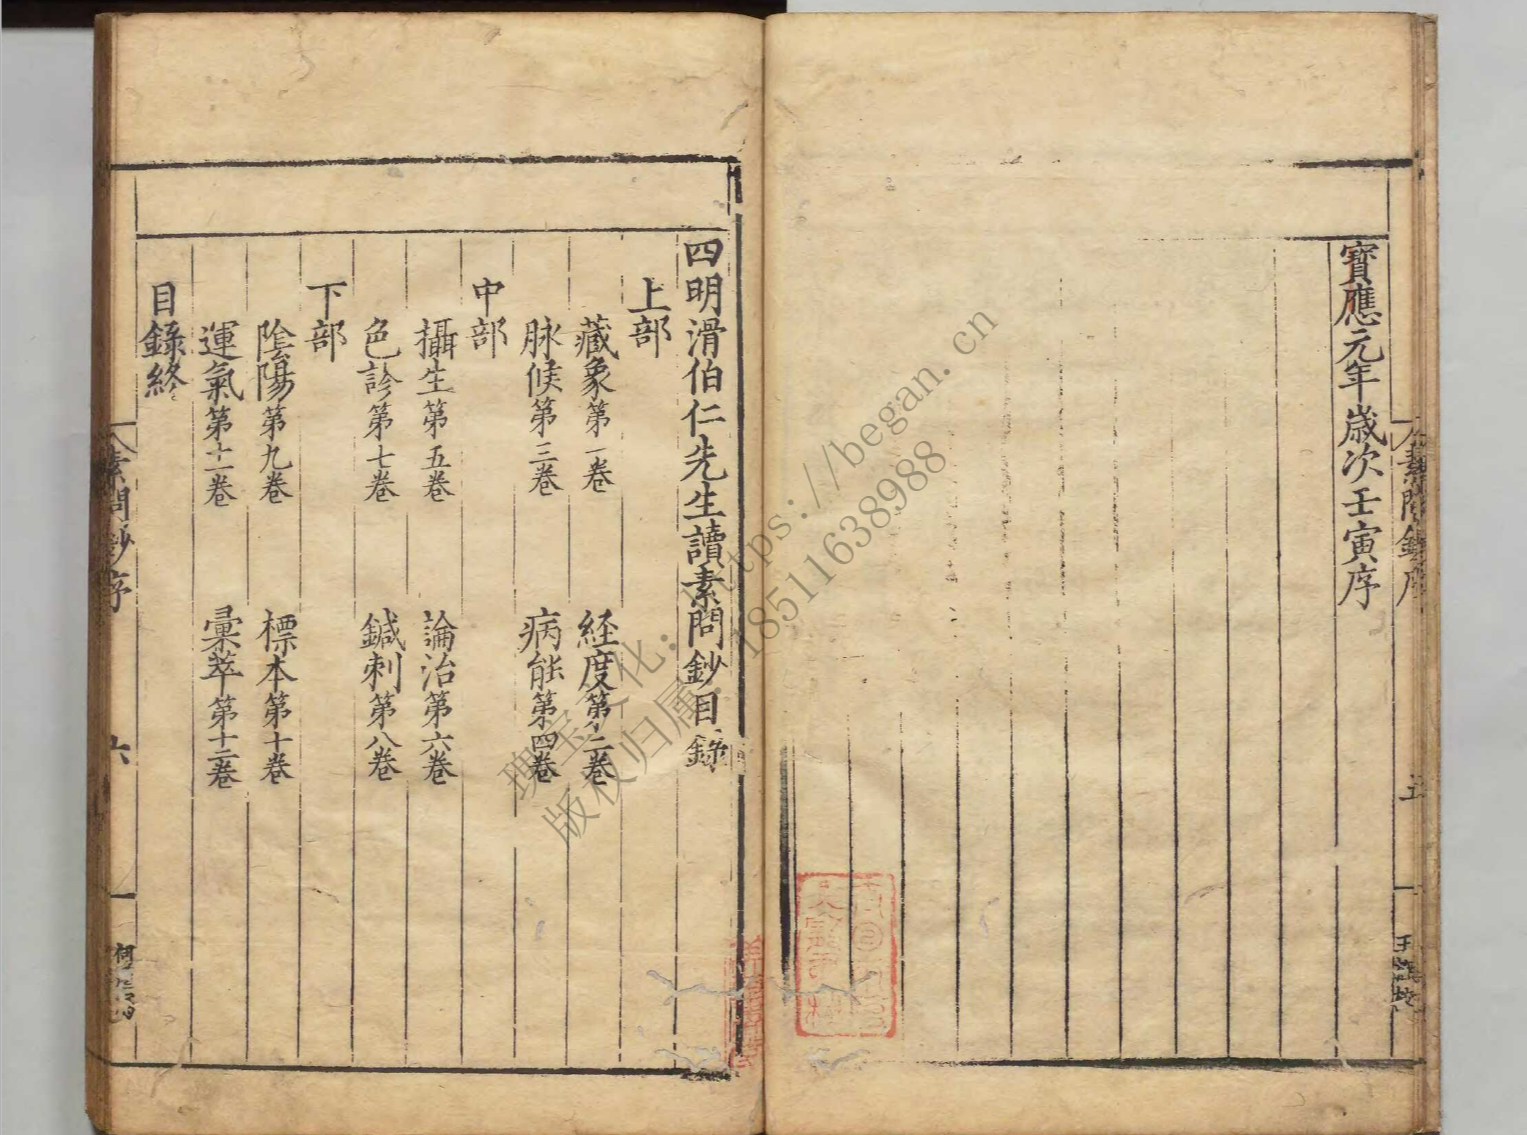 寶應元年歲次壬寅序
素問鈔序
五
四明滑伯仁先生讀素問鈔目錄
上部
藏象第一卷 經度第二卷
脉候第三卷 病能第四卷
中部
攝生第五卷 論治第六卷
色診第七卷 鍼刺第八卷
下部
陰陽第九卷 標本第十卷
運氣第十一卷 彙萃第十二卷
目錄終
素問鈔序
六
https://began.cn
18511638988
版权归属